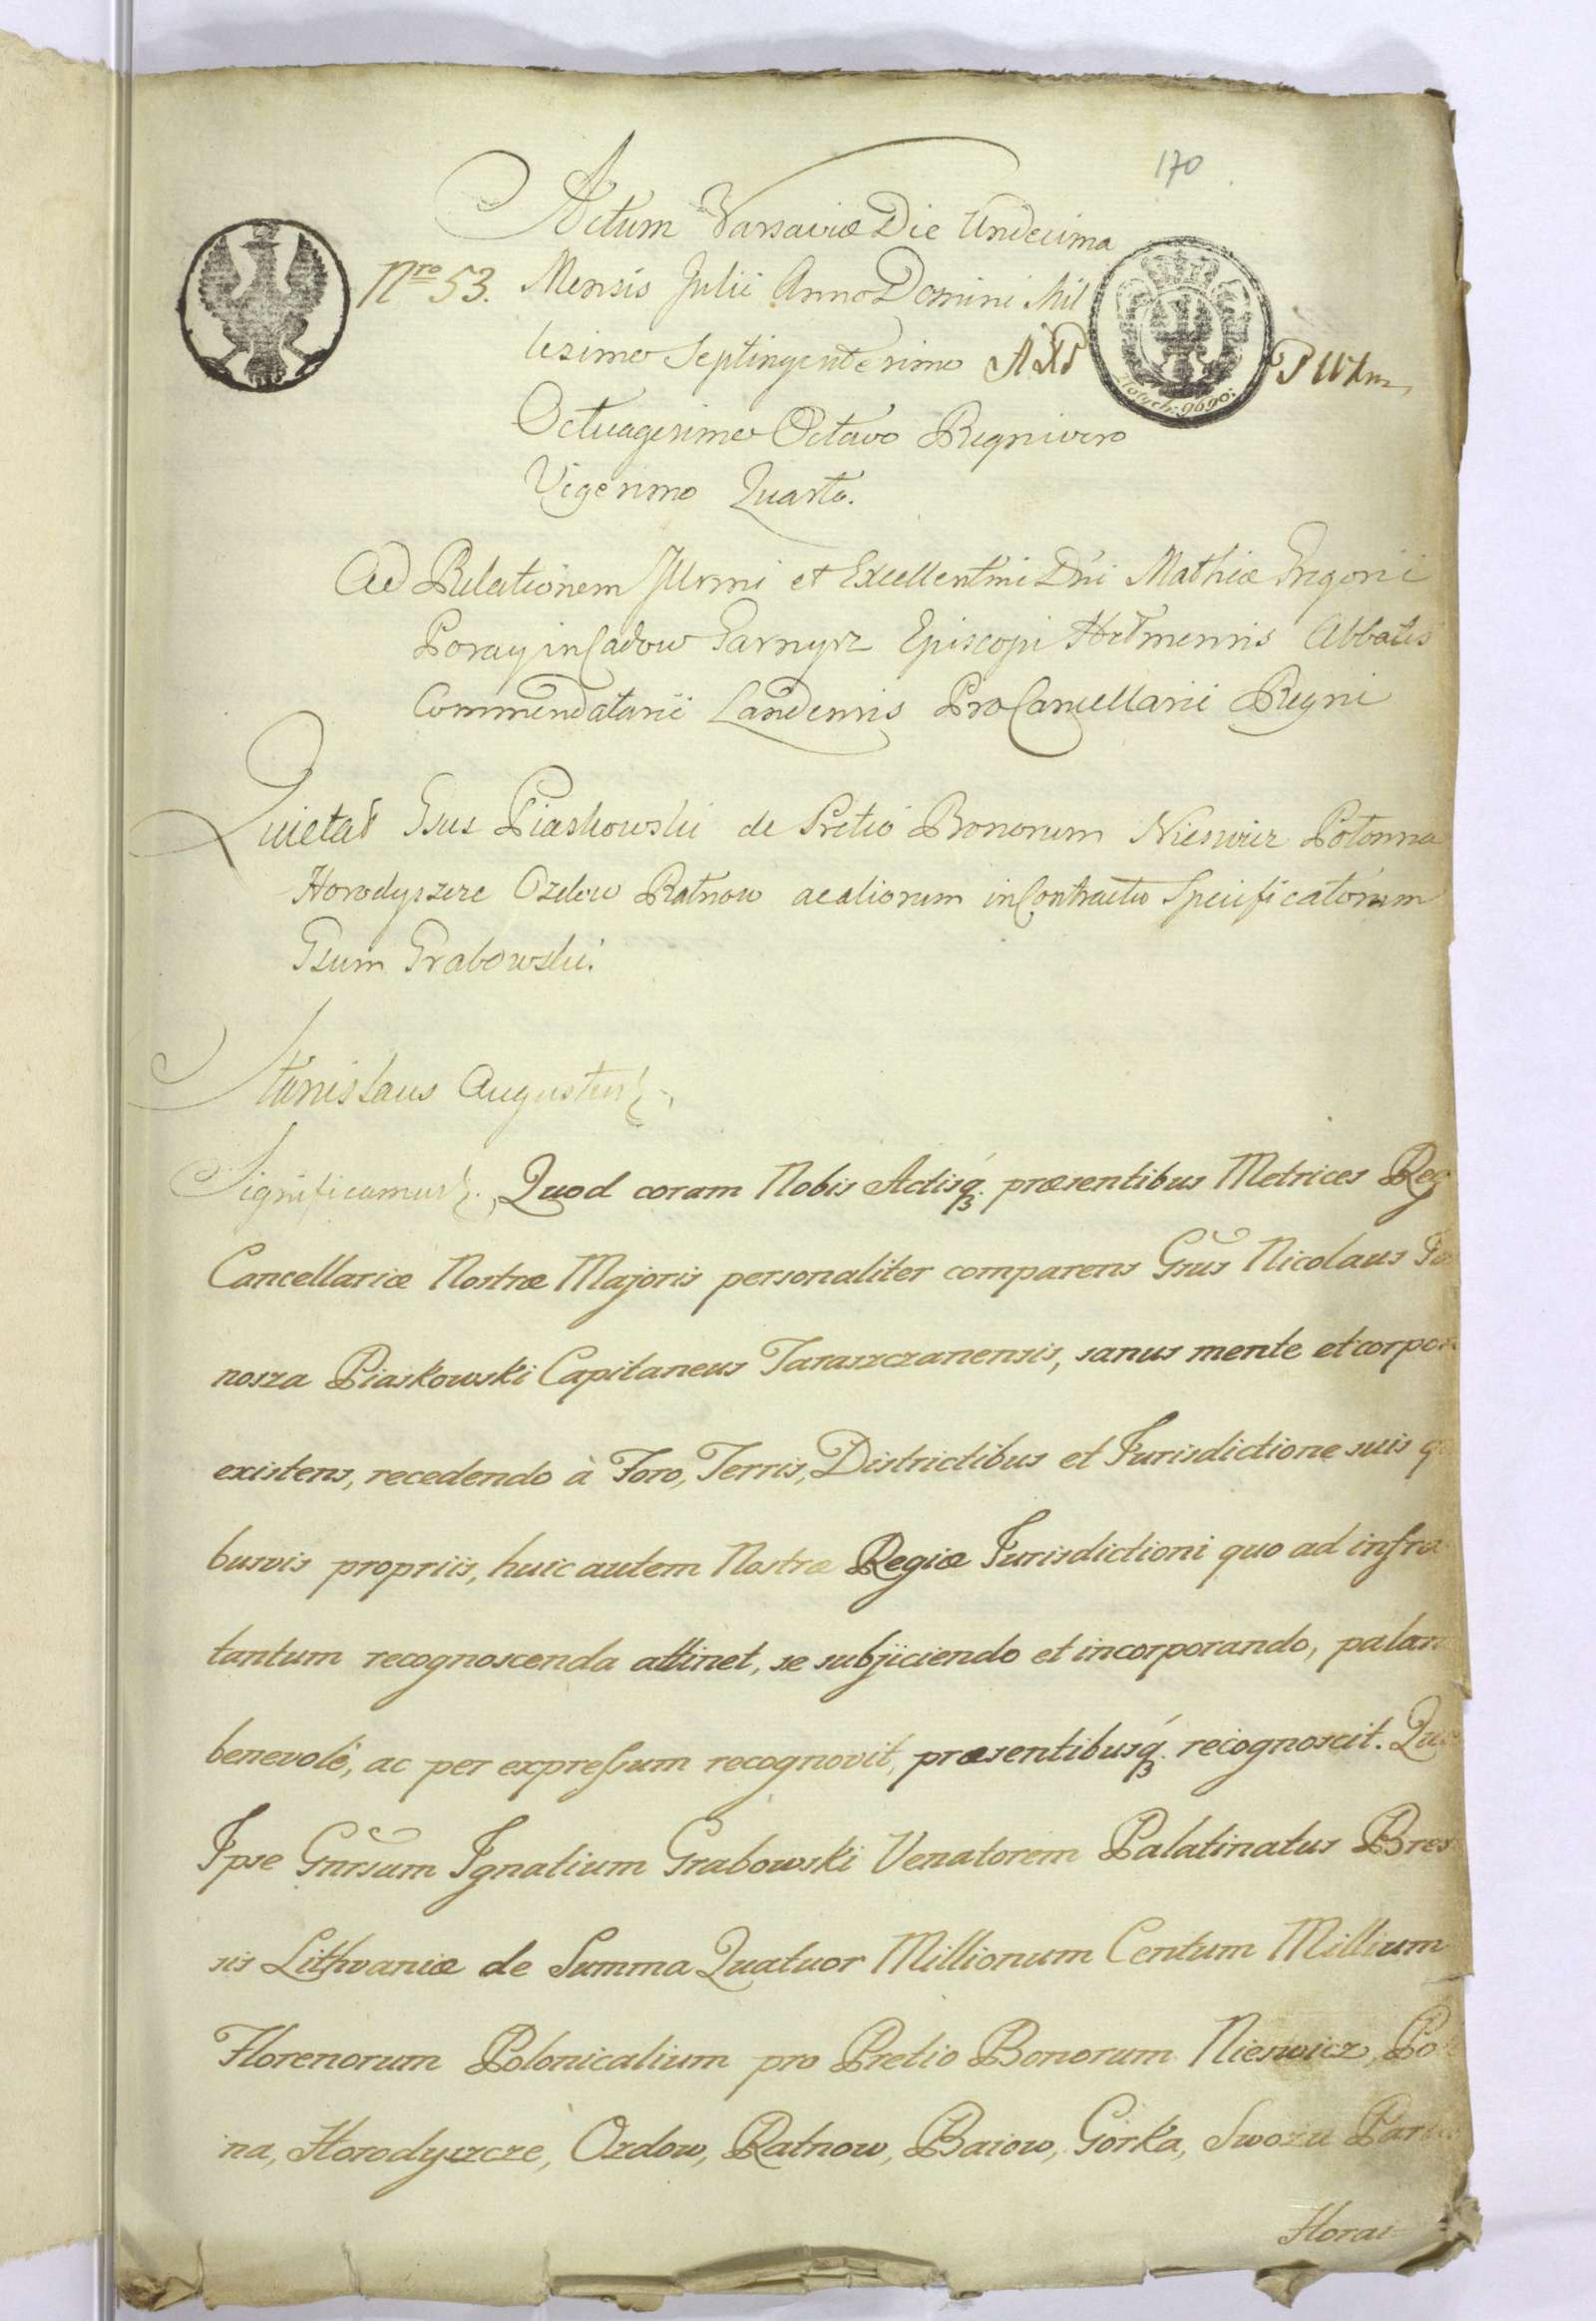 170
Actum Varsaviæ Die Undecima
Nro 53. Mensis Julii Anno Domini Mil
lesimo Septingentesimo
Złotych: 9690:
Octuagesimo Octavo Regni vero
Vigesimo Quarto.
Ad Relationem Illrmi et Excellentmi Dni Mathiæ Grzegorii
Poray in Cadow Garnysz Episcopi Chełmensis Abbatis
Commendatarii Landensis ProCancellarii Regni
Quietat Gsus Piaskowski de Pretio Bonorum Nieswicz Połonna
Horodyszcze Ozdow Ratnow ac aliorum in Contractu Specificatorum
Gsum Grabowski.
Stanislaus Augustus
Significamus Quod coram Nobis Actisq. præsentibus Metrices Reg
Cancellariæ Nostræ Majoris personaliter comparens Gsus Nicolaus
nosza Piaskowski Capitaneus Taraszczanensis, sanus mente et corpor
existens, recedendo à Foro, Terris, Districtibus et Jurisdictione suis q
busvis propriis, huic autem Nostræ Regiæ Jurisdictioni quo ad infra
tantum recognoscenda attinet, se subjiciendo et incorporando, palam
benevolè, ac per expressum recognovit, præsentibusq. recognoscit. Qu
Ipse Gnrsum Ignatium Grabowski Venatorem Palatinatus Bres
sis Lithvaniæ de Summa Quatuor Millionum Centum Millium
Florenorum Polonicalium pro Pretio Bonorum Nieswicz, Po
na, Horodyszcze, Ozdow, Ratnow, Baiow, Gorka,
Horai